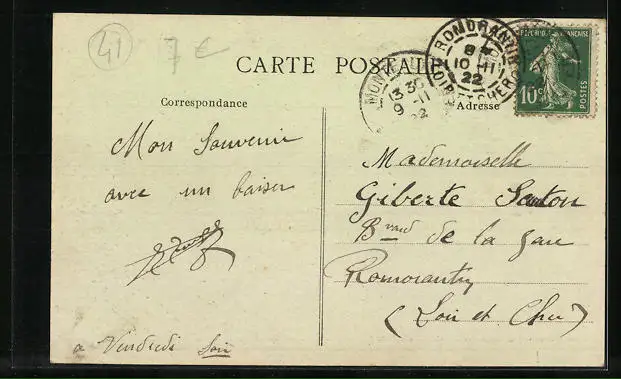 41
7 €
CARTE POSTALE
MON
13 30
9 -11
22
ROMORANTIN
8 M
10 -11
22
LOIR ET CHER
FRANÇAISE
10c
POSTES
Correspondance
Adresse
Mon Souvenir
avec un baiser
à Vendredi Soir
Mademoiselle
Giberte Santon
Bvard de la gare
Romorantin
(Loir et Cher)